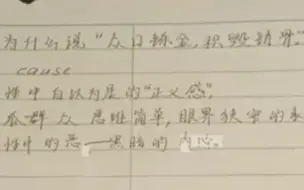 为什么说“众口铄金,积毁销骨”
cause
性中自以为是的“正义感”
众 思维简单,眼界狭窄的
性中的恶——黑暗的内心。